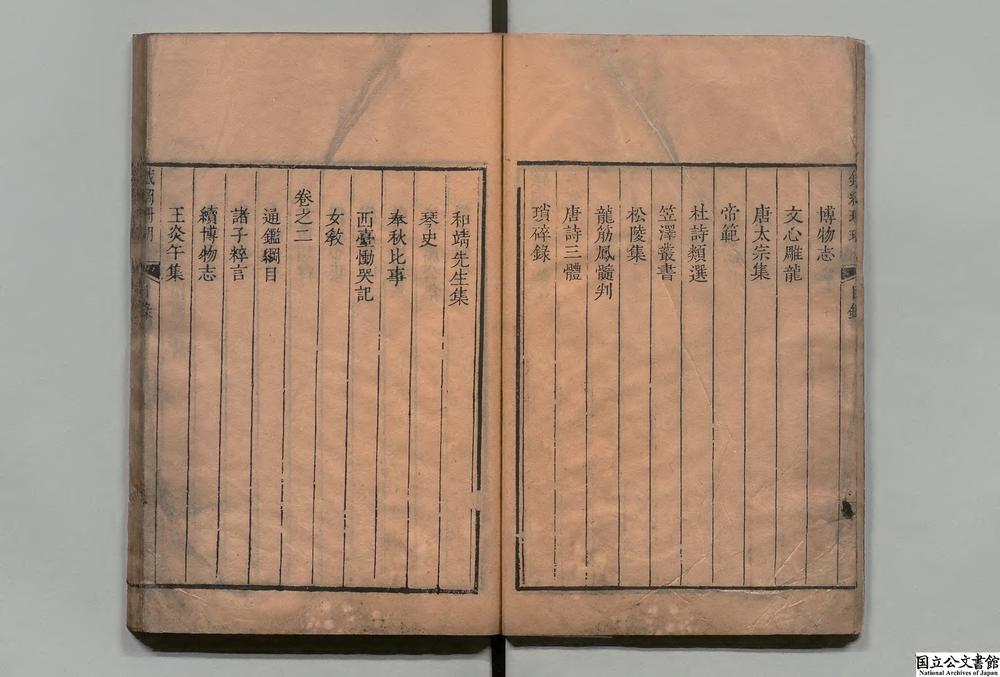 博物志
文心雕龍
唐太宗集
帝範
杜詩類選
笠澤叢書
松陵集
龍筋鳳髓判
唐詩三體
瑣碎錄
和靖先生集
琴史
春秋比事
西臺慟哭記
女敎
卷之二
通鑑綱目
諸子粹言
續博物志
王炎午集
国立公文書館
National Archives of Japan